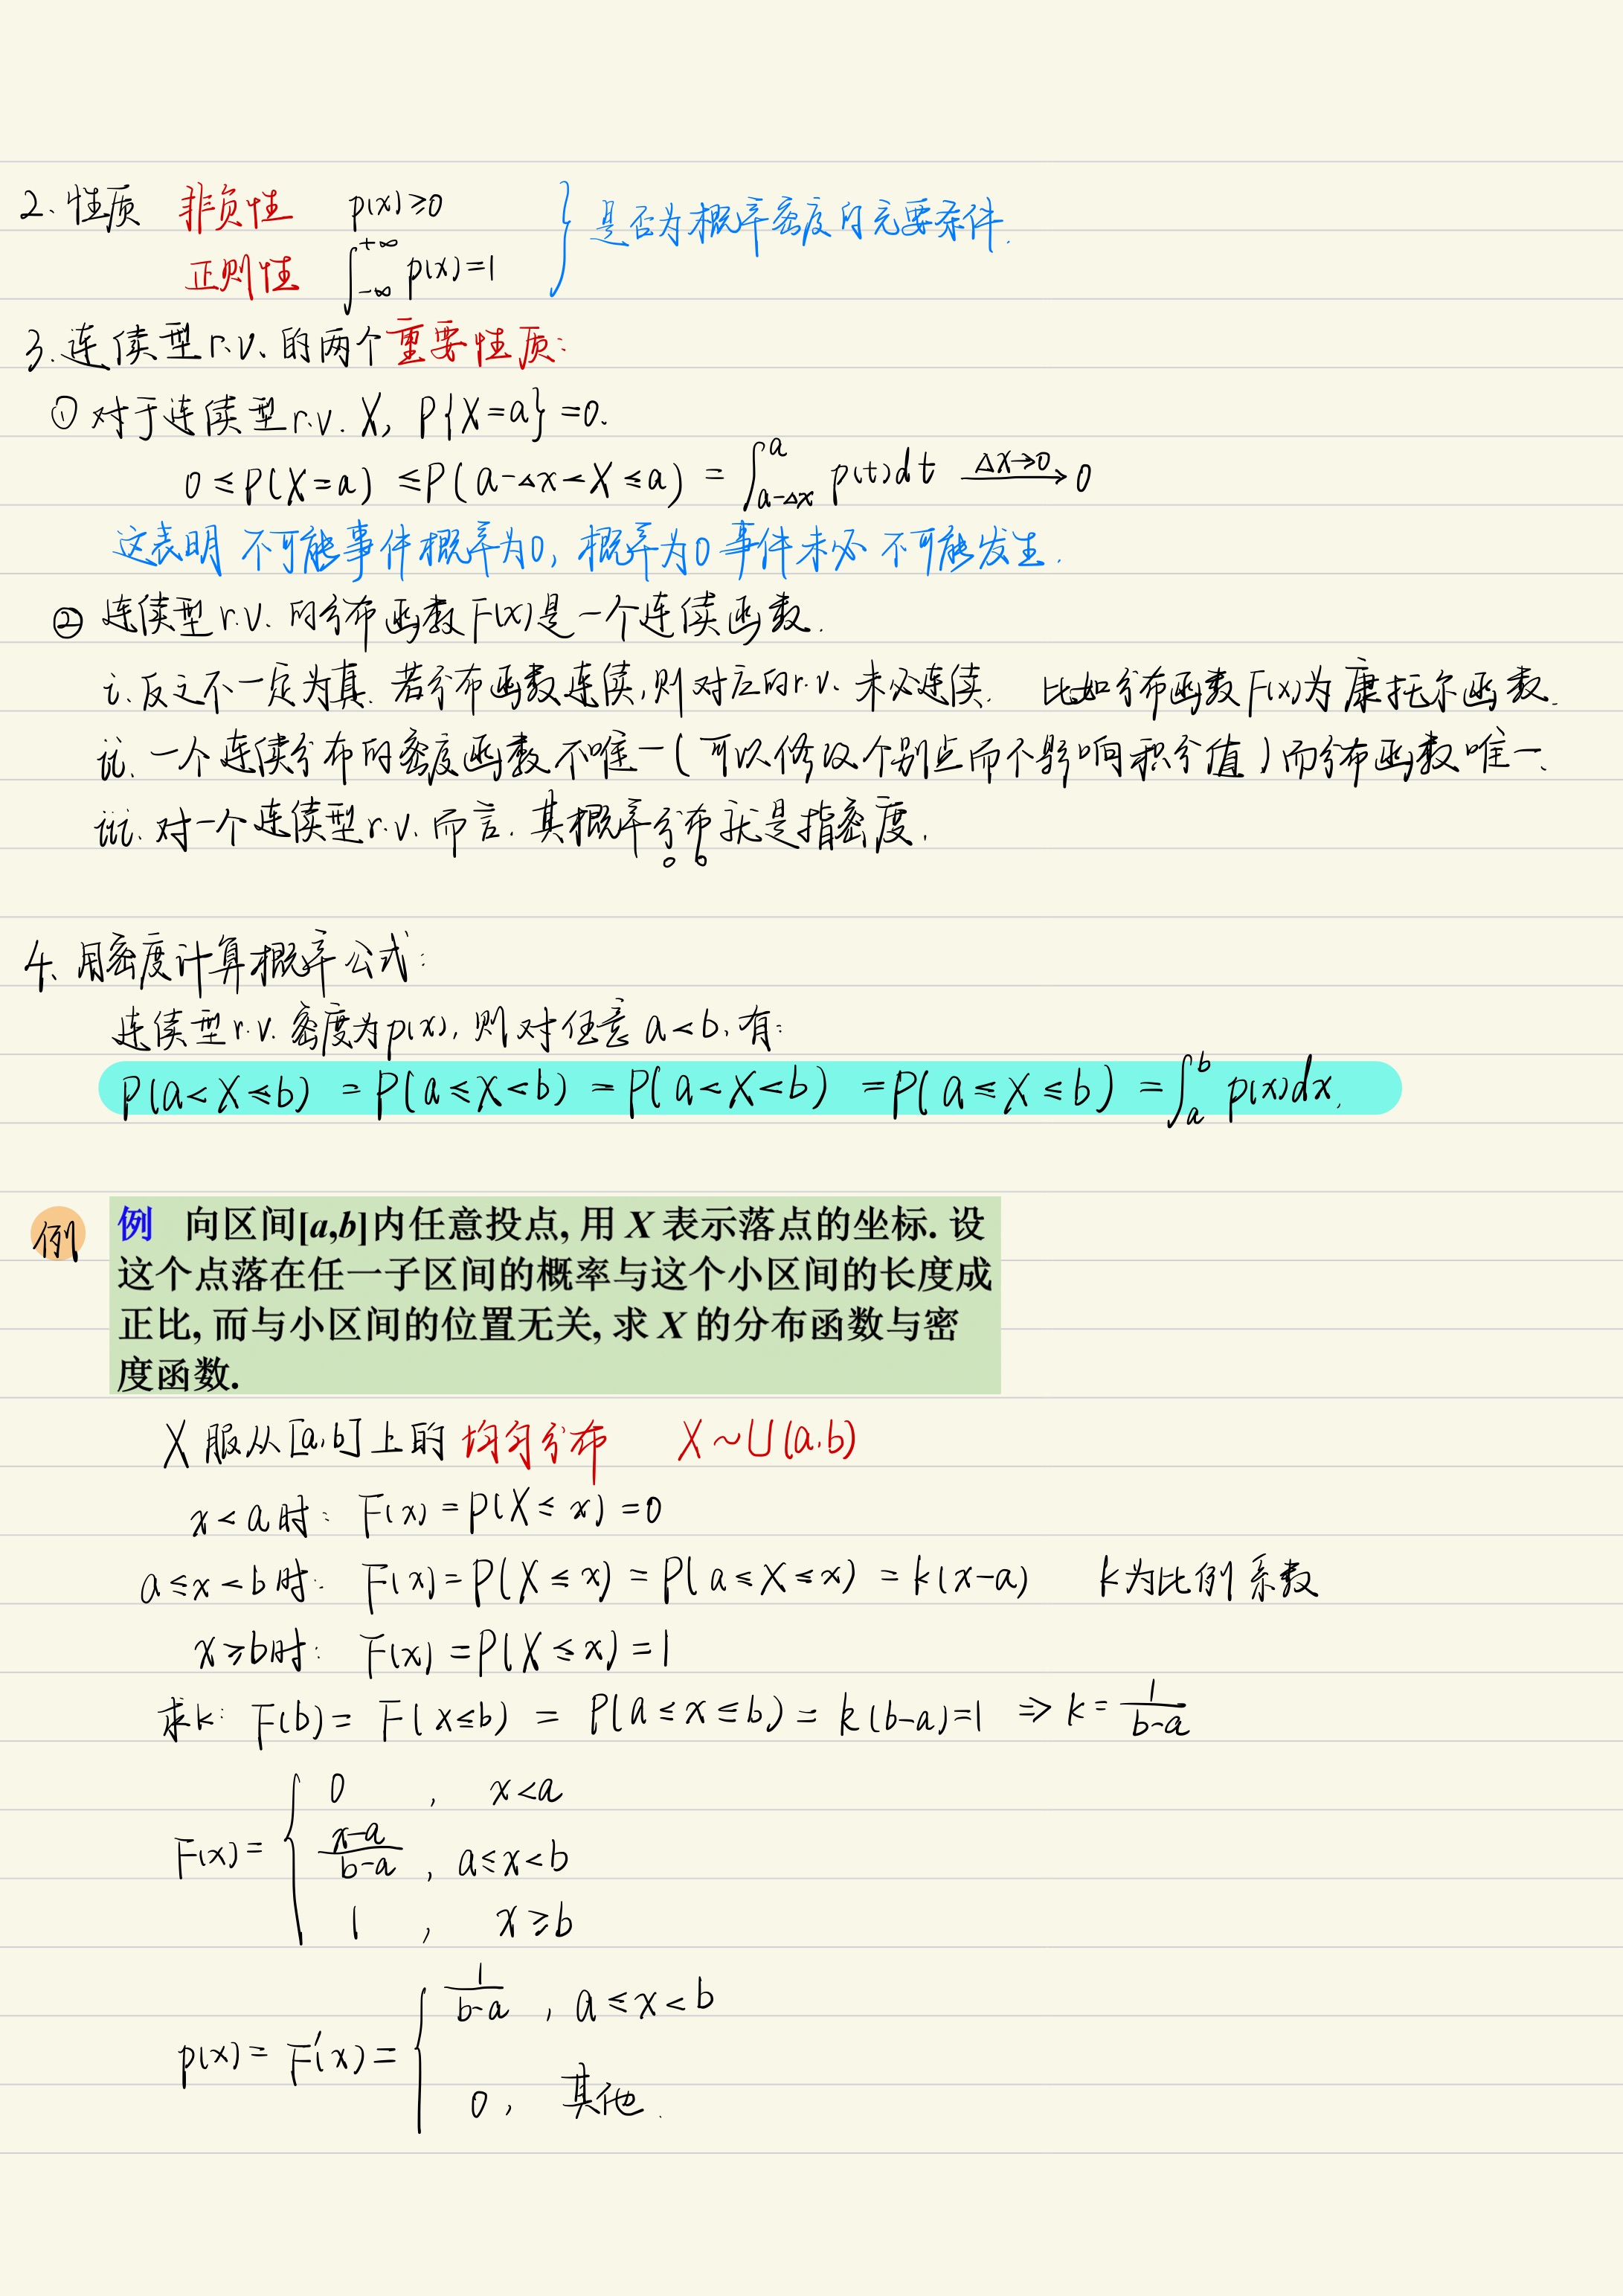 2. 性质 非负性 p(x)≥0 } 是否为概率密度的充要条件.
正则性 ∫_{-∞}^{+∞} p(x)=1
3. 连续型r.v.的两个重要性质:
① 对于连续型r.v. X, P{X=a}=0.
0≤P(X=a)≤P(a-Δx<X≤a) = ∫_{a-Δx}^{a} p(t)dt —Δx→0→ 0
这表明 不可能事件概率为0, 概率为0事件未必 不可能发生.
② 连续型r.v.的分布函数F(x)是一个连续函数.
i. 反之不一定为真. 若分布函数连续,则对应的r.v.未必连续. 比如分布函数F(x)为康托尔函数.
ii. 一个连续分布的密度函数不唯一(可以修改个别点而不影响积分值)而分布函数唯一.
iii. 对一个连续型r.v.而言. 其概率分布就是指密度.
4. 用密度计算概率公式:
连续型r.v.密度为p(x), 则对任意a<b,有:
P(a<X≤b) = P(a≤X<b) = P(a<X<b) = P(a≤X≤b) = ∫_{a}^{b} p(x)dx.
例 例 向区间[a,b]内任意投点, 用 X 表示落点的坐标. 设
这个点落在任一子区间的概率与这个小区间的长度成
正比, 而与小区间的位置无关, 求 X 的分布函数与密
度函数.
X 服从[a,b]上的 均匀分布 X~U(a,b)
x<a时: F(x)=P(X≤x)=0
a≤x<b时: F(x)=P(X≤x)=P(a≤X≤x)=k(x-a) k为比例系数
x≥b时: F(x)=P(X≤x)=1
求k: F(b)= F(x≤b) = P(a≤x≤b) = k(b-a)=1 ⇒ k=\frac{1}{b-a}
F(x)= { 0 , x<a
\frac{x-a}{b-a} , a≤x<b
1 , x≥b
p(x)= F'(x)= { \frac{1}{b-a} , a≤x<b
0, 其他.